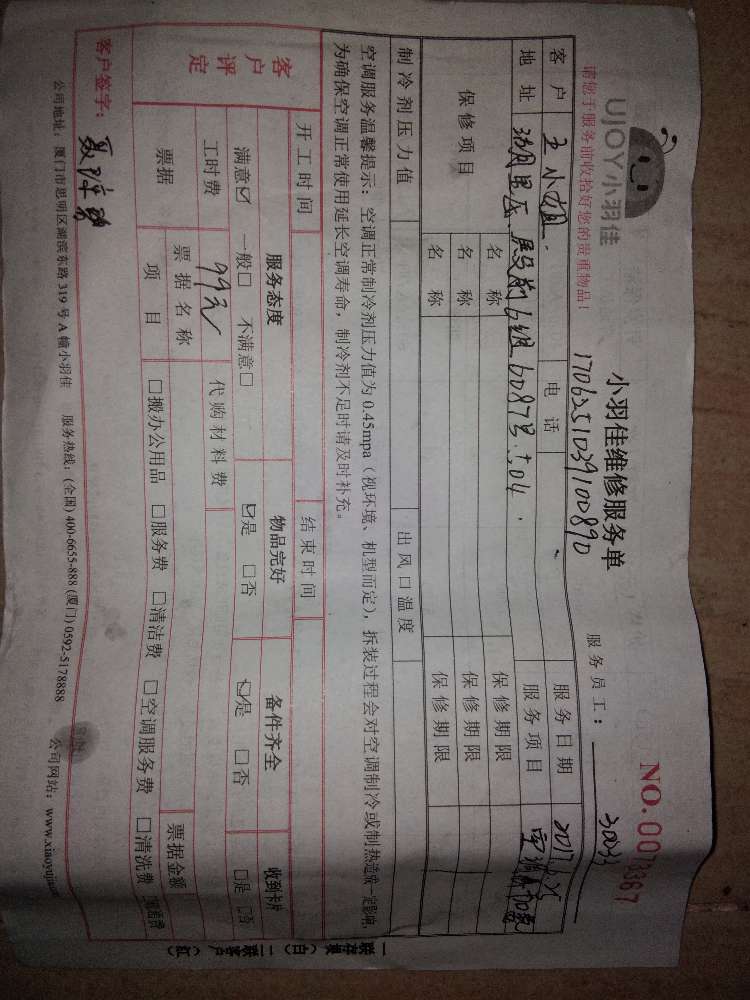 UJOY小羽佳
小羽佳维修服务单
NO.0078387
请您于服务前收拾好您的贵重物品!
1706251039100890
服务员工:
30033
客户 王小姐 电话 服务日期
地址 服务项目
保修项目 名称 保修期限
名称 保修期限
名称 保修期限
制冷剂压力值 出风口温度
空调服务温馨提示: 空调正常制冷剂压力值为0.45mpa(视环境、机型而定), 拆装过程会对空调制冷或制热造成一定影响,
为确保空调正常使用延长空调寿命, 制冷剂不足时请及时补充。
开工时间 结束时间
客户评定 服务态度 物品完好 备件齐全 收到卡片
满意☑ 一般□ 不满意□ ☑是 □否 ☑是 □否 □是 □否
工时费 99元 代购材料费
票据 票据名称 票据金额
项目 □搬办公用品 □服务费 □清洁费 □空调服务费 □清洗费
客户签字:
公司地址: 厦门市思明区湖滨东路319号A幢小羽佳 服务热线: (全国) 400-6655-888 (厦门) 0592-5178888 公司网站: www.xiaoyujia
一联存根(白) 二联客户(红)